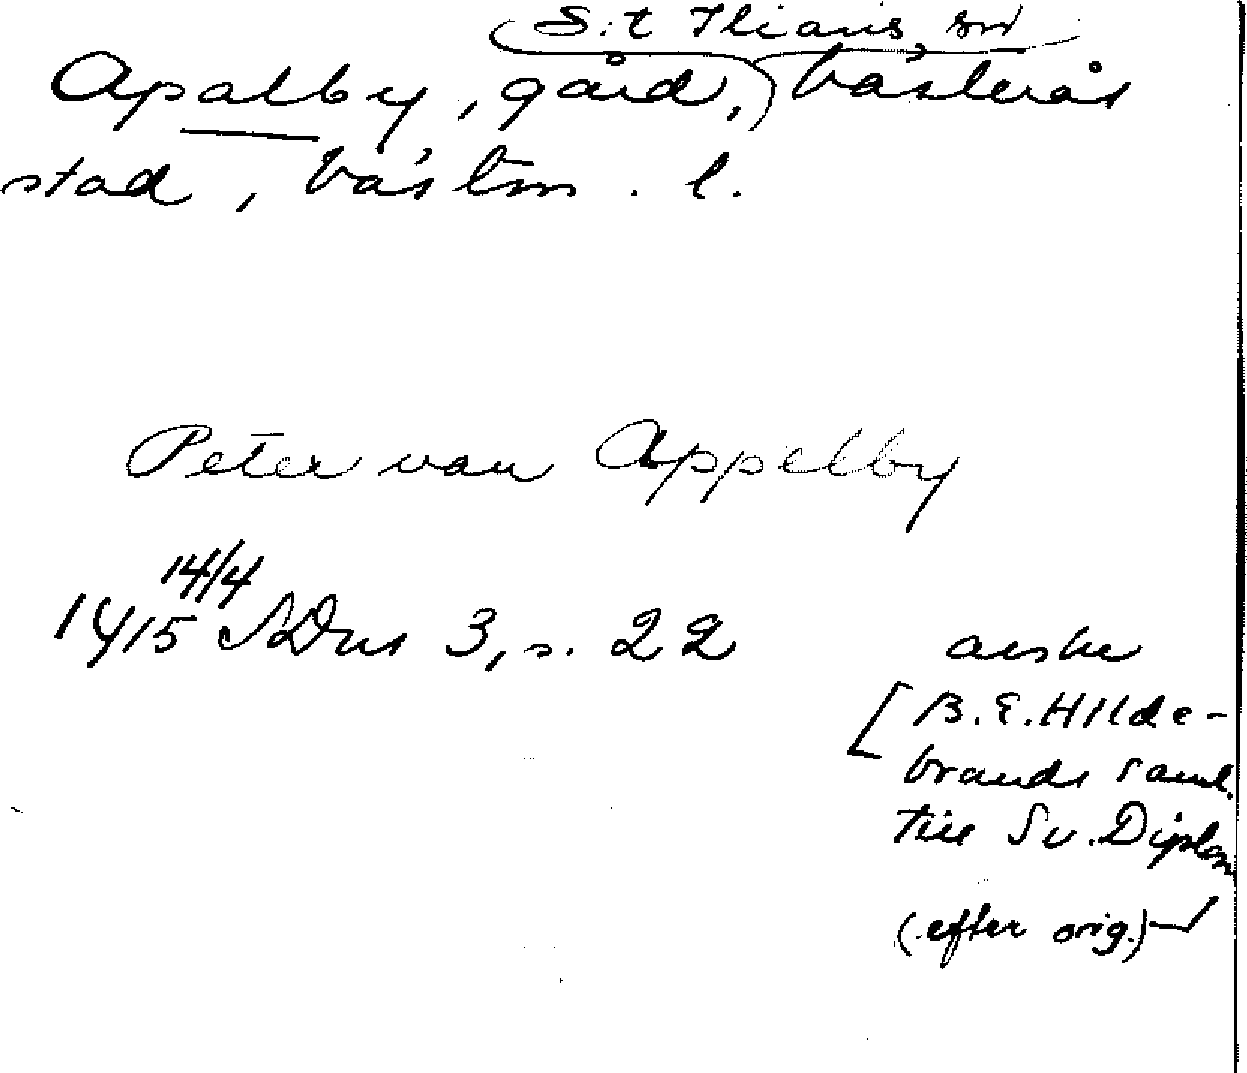 S:t Ilians sn
Apalby, gård, Västerås
stad, Västm. l.
Peter van Appelby
14/4
1415 SDns 3, s. 22
avskr
[B. E. Hilde-
brands saml.
till Sv. Diplom
(efter orig.)